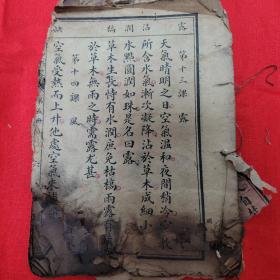 露 第十三課 露
天氣晴明之日空氣溫和夜間稍冷空氣
沾 所含水氣漸次凝降沾於草木成細小
潤 水點圓潤如珠是名曰露
槁 草木生長恃有水潤庶免枯槁雨露
於草木無雨之時需露尤甚
第十四課 風
空氣受熱而上升他處空氣來